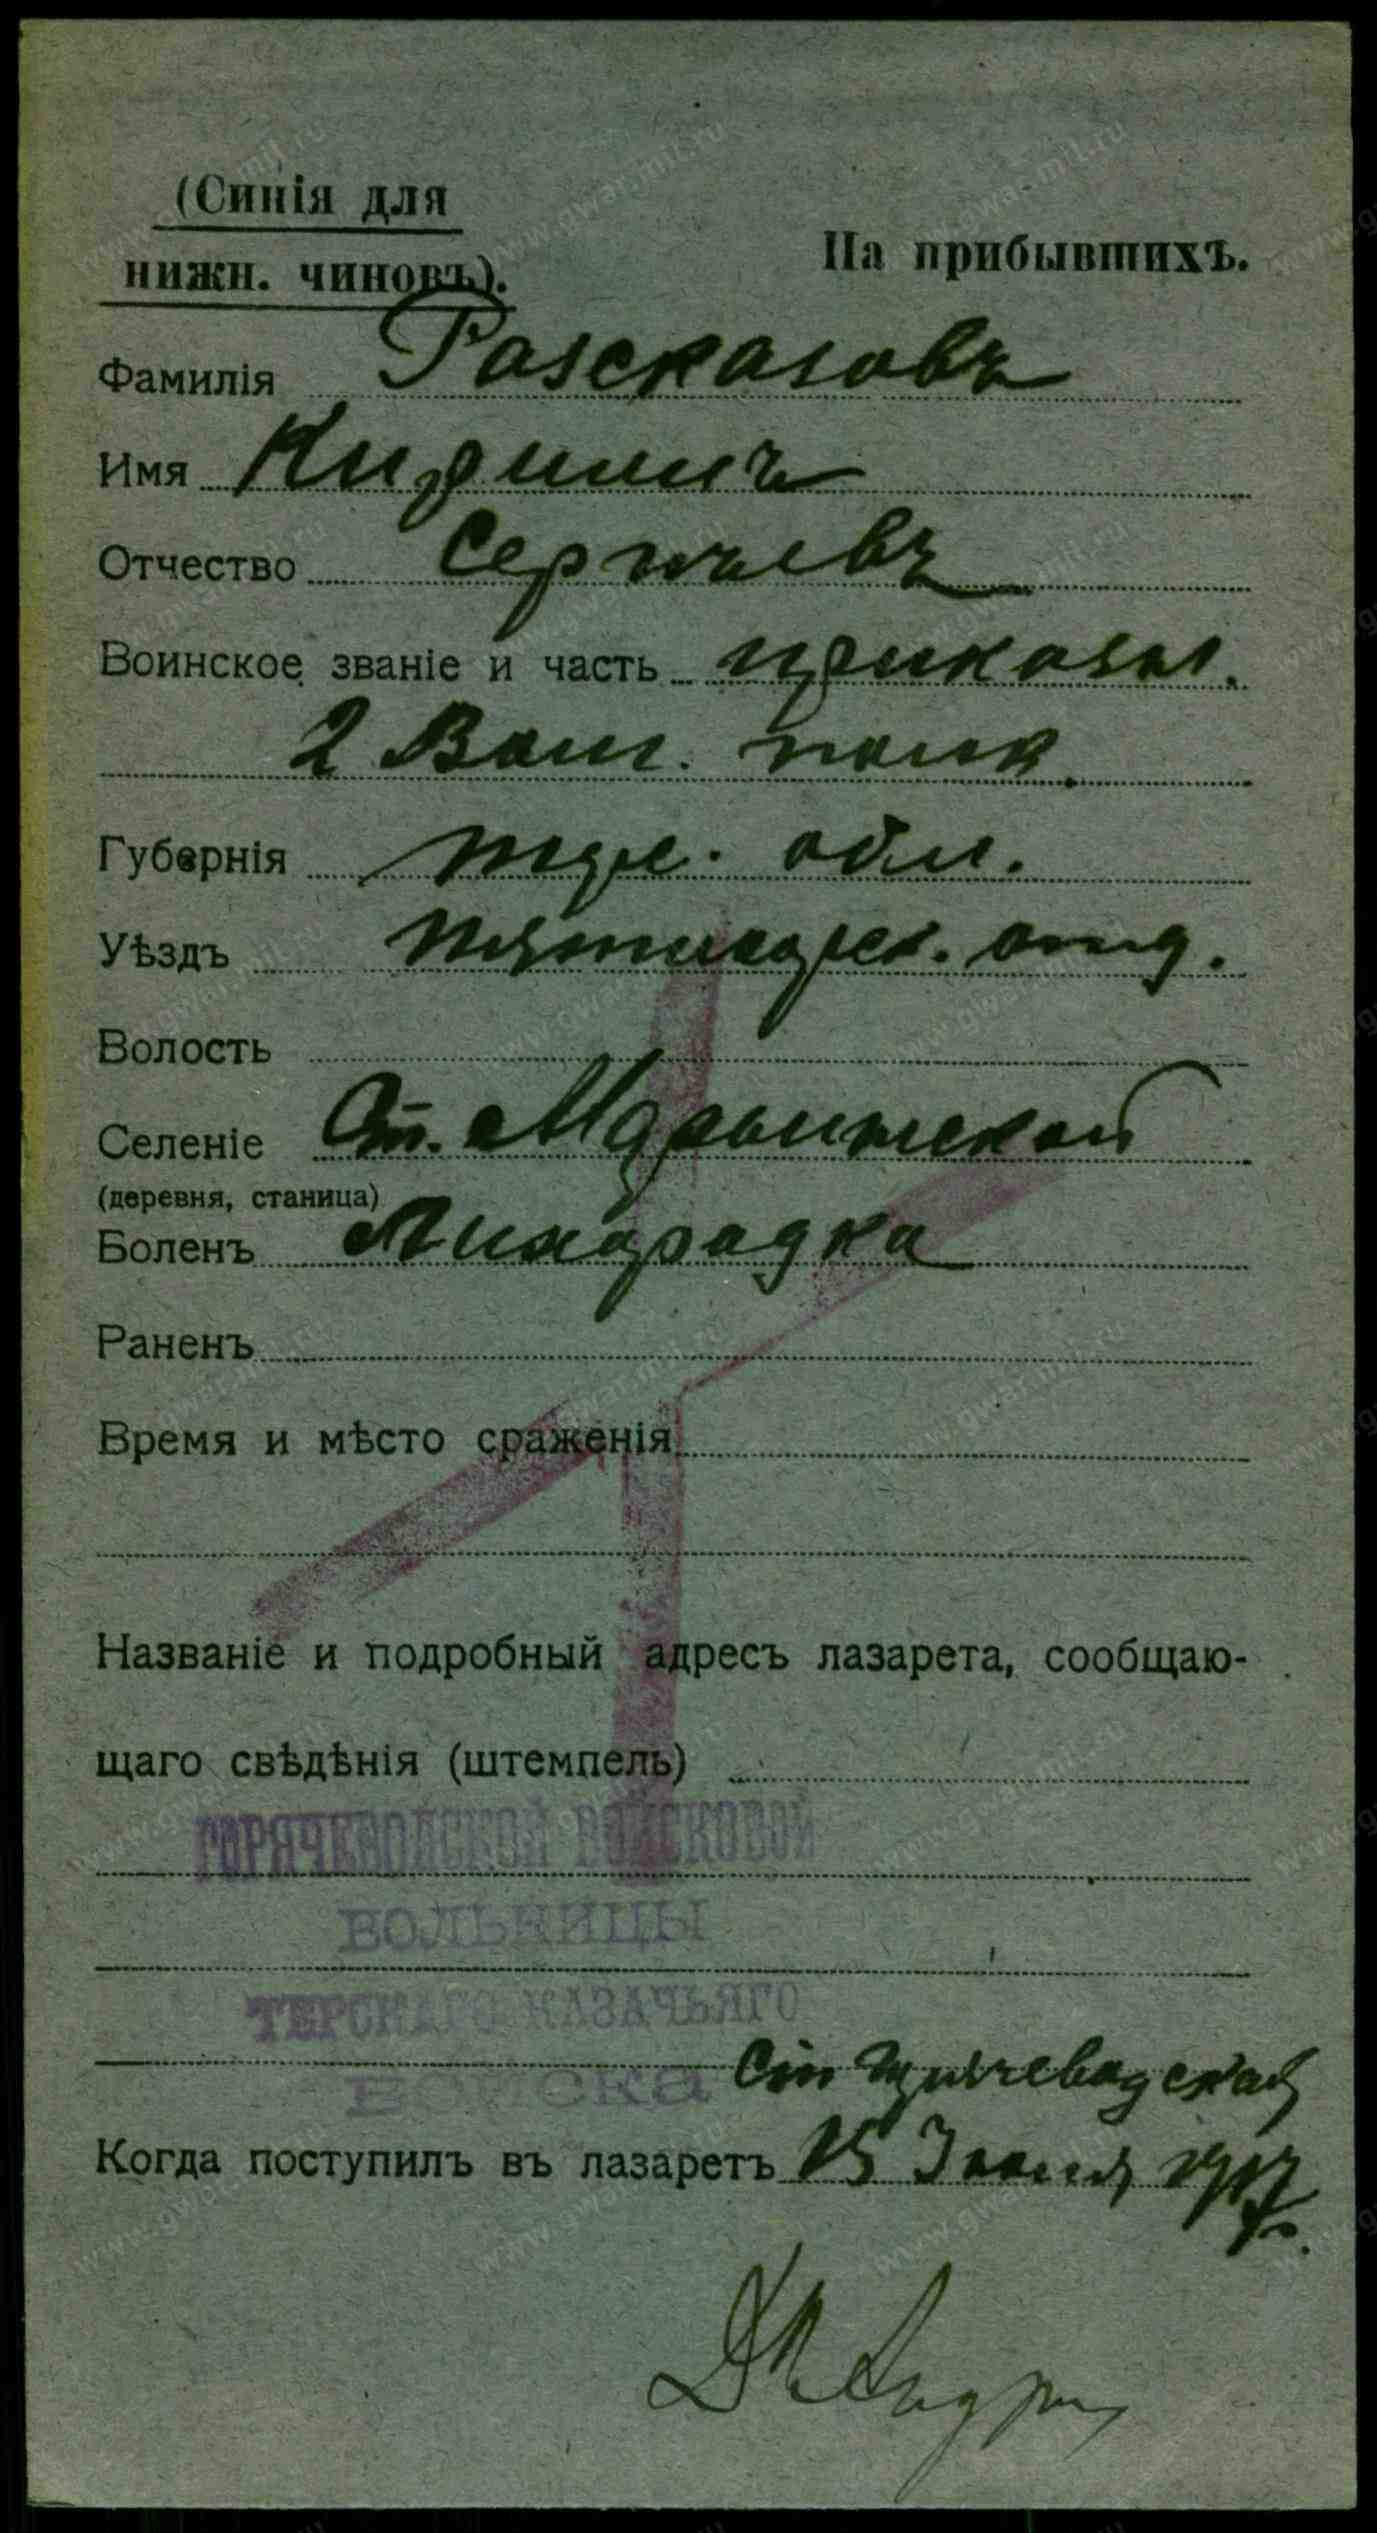 (Синія для
нижн. чиновъ).
На прибывшихъ.
Фамилія Разсказовъ
Имя Кириллъ
Отчество Сергѣевъ
Воинское званіе и часть приказн.
2 Волг. полка
Губернія Тер. обл.
Уѣздъ Пятигорск. отд.
Волость
Селеніе Ст. Марьинской
(деревня, станица)
Боленъ Лихорадка
Раненъ
Время и мѣсто сраженія
Названіе и подробный адресъ лазарета, сообщаю-
щаго свѣдѣнія (штемпель)
ГОРЯЧЕВОДСКОЙ ВОЙСКОВОЙ
БОЛЬНИЦЫ
ТЕРСКАГО КАЗАЧЬЯГО
ВОЙСКА Ст. Горячеводская
Когда поступилъ въ лазаретъ 15 Іюля 1917 г.